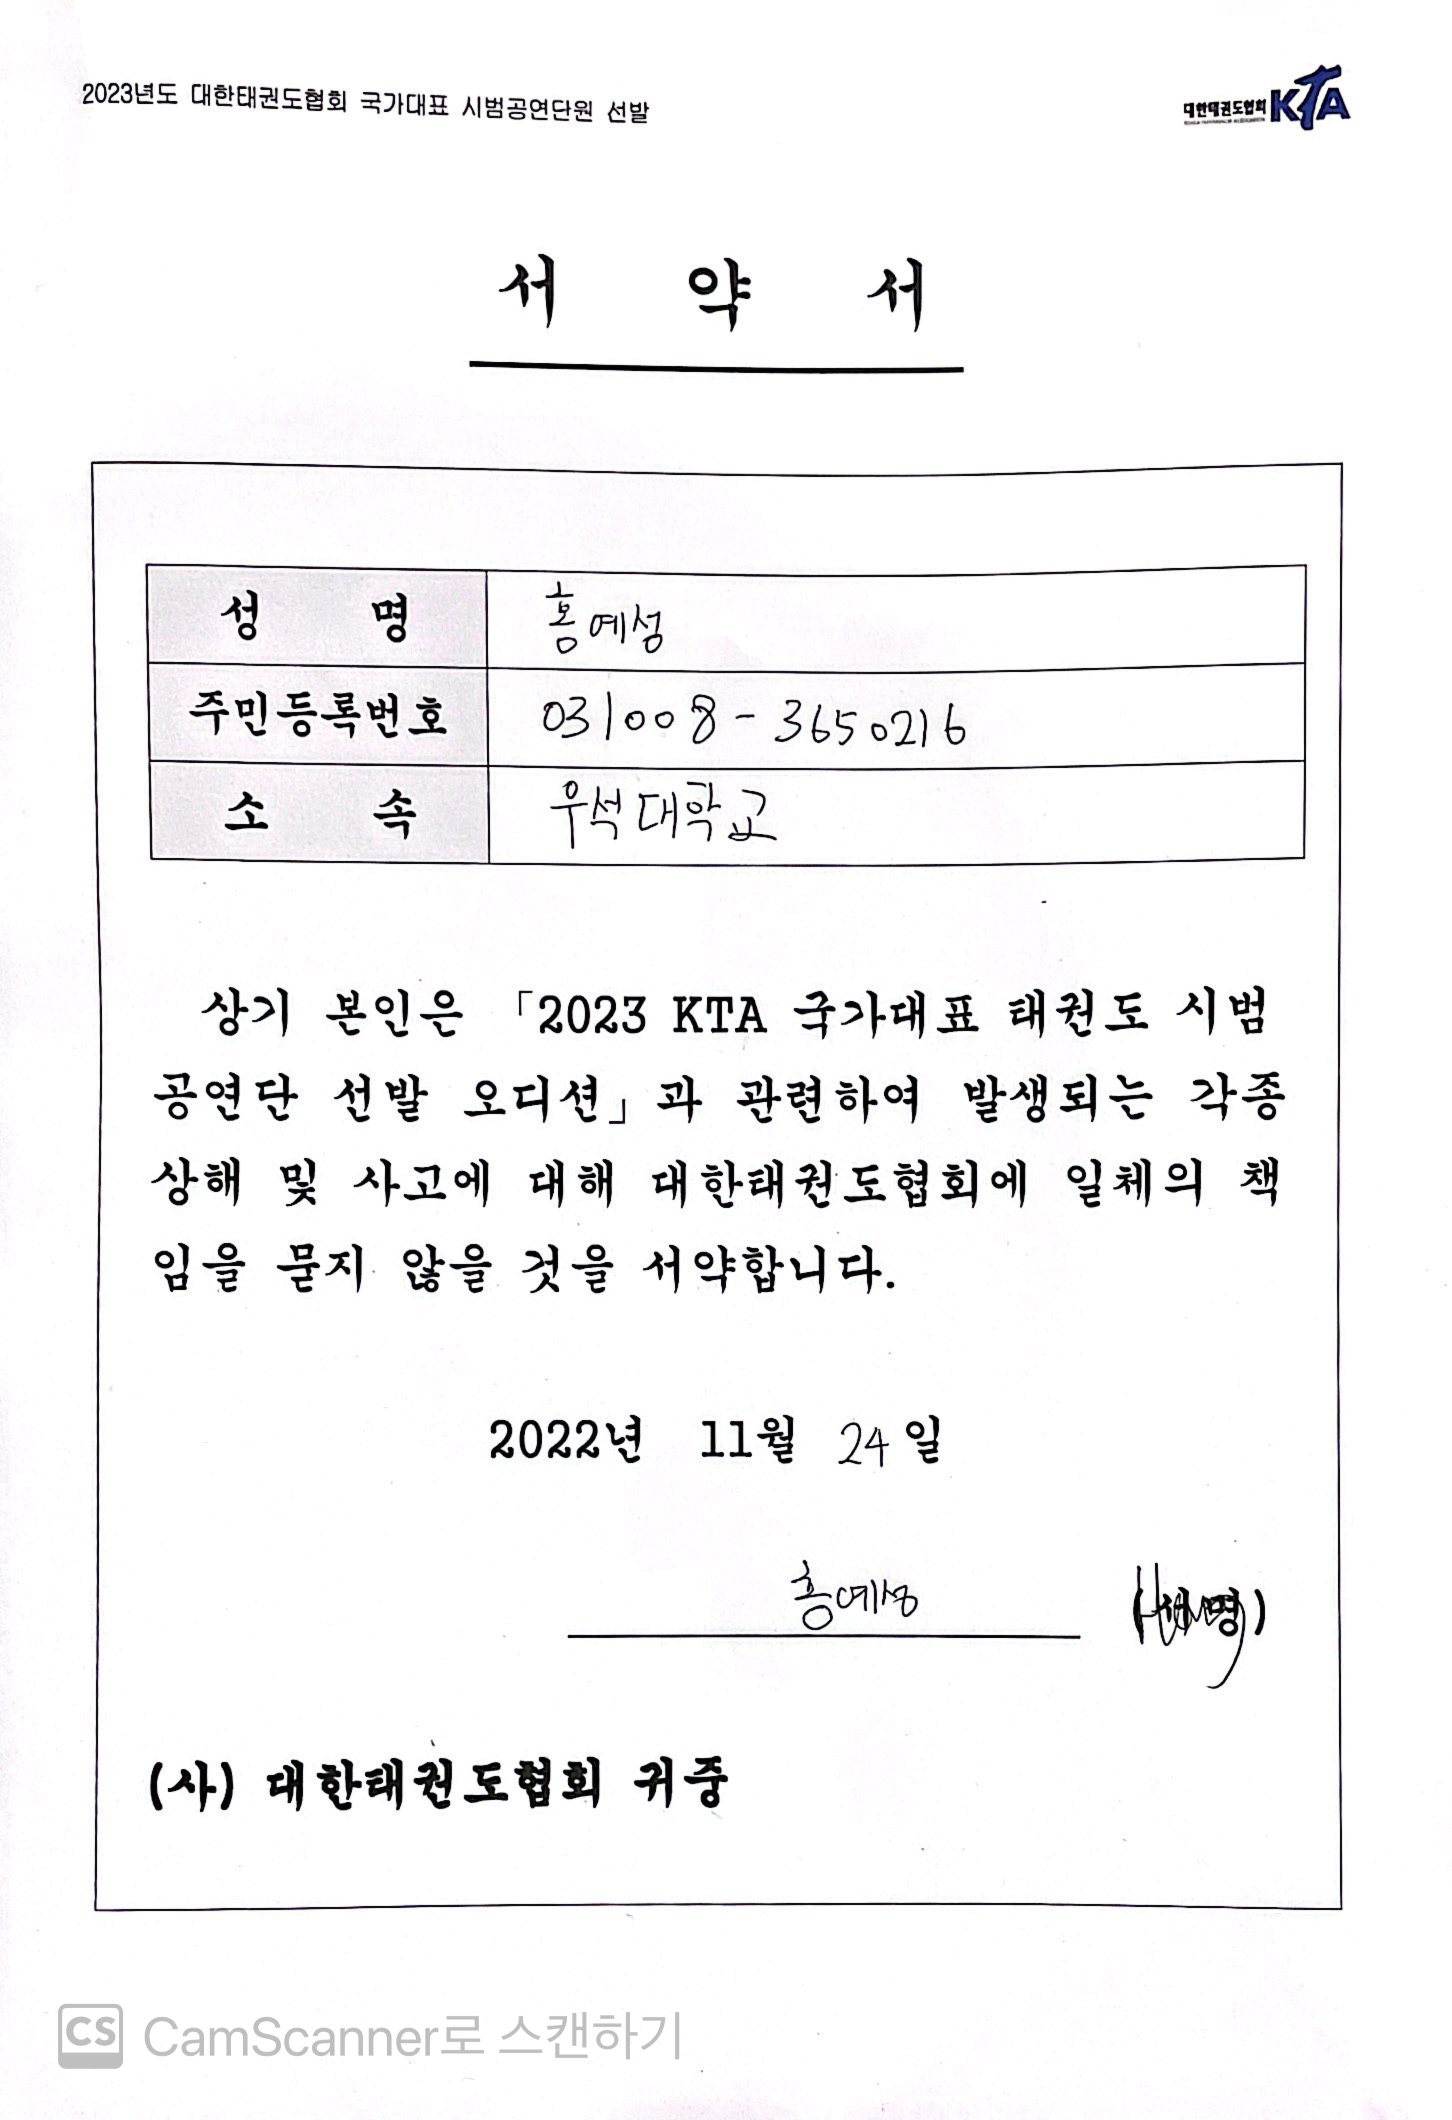 2023년도 대한태권도협회 국가대표 시범공연단원 선발
대한태권도협회 KTA
서 약 서
성 명 홍예성
주민등록번호 031008-3650216
소 속 우석대학교
상기 본인은 「2023 KTA 국가대표 태권도 시범
공연단 선발 오디션」과 관련하여 발생되는 각종
상해 및 사고에 대해 대한태권도협회에 일체의 책
임을 묻지 않을 것을 서약합니다.
2022년 11월 24일
홍예성 (서명)
(사) 대한태권도협회 귀중
CS CamScanner로 스캔하기